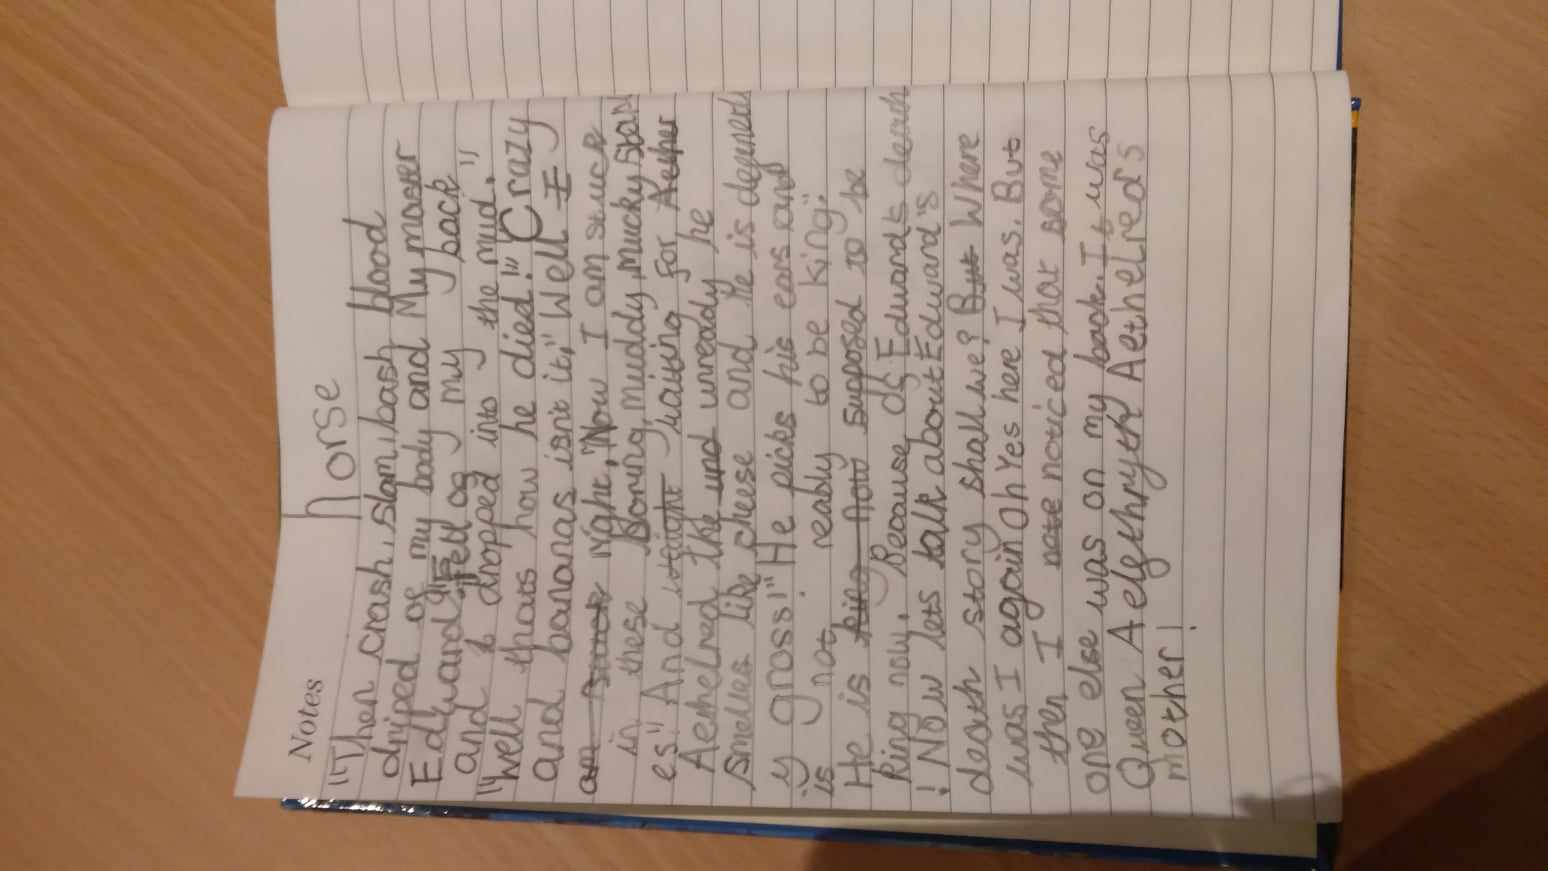 Notes
horse
"Then crash, slam, bash blood
driped of my body and My master
Edward fell of my back"
and dropped into the mud."
"well thats how he died!" Crazy
and bananas isn't it," Well I
am stuck right, "Now I am stuck
in these Boring, muddy, mucky stabl
es" And waiting for
Aethelred the und unready he
smelles like cheese and he is defineth
y gross!" He picks his ears and
is not reably to be king".
He is king now supposed to be
king now, Because of Edwards death
! Now lets talk about Edward's
death story shall we? But Where
was I again oh Yes here I was. But
then I note noticed that some
one else was on my back. It was
Queen Aelfthryth Aethelred's
mother!